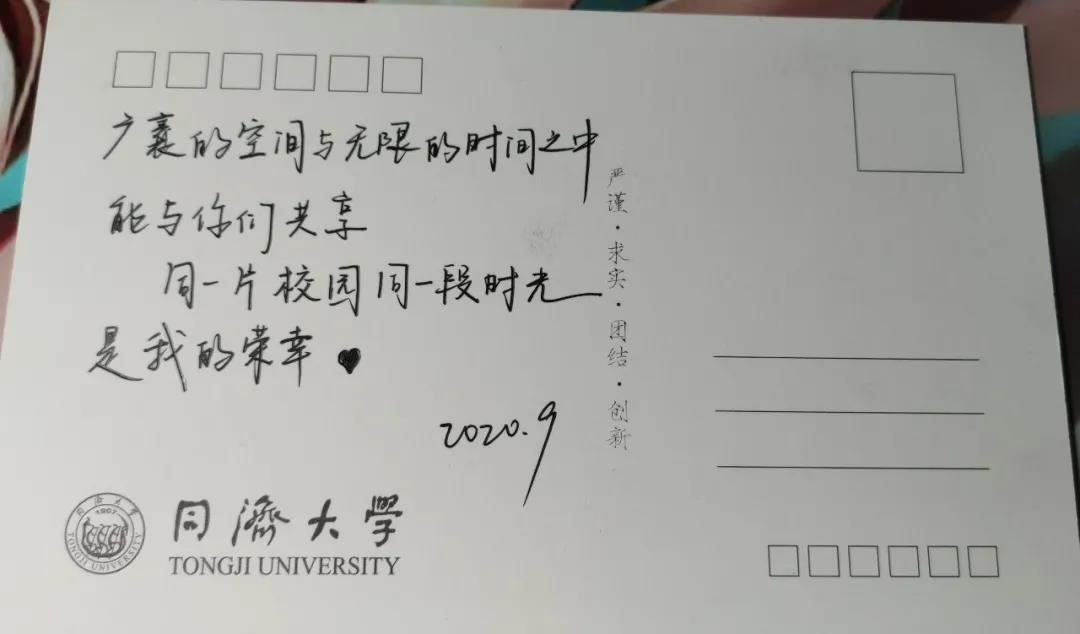 广袤的空间与无限的时间之中
能与你们共享
同一片校园同一段时光
是我的荣幸
2020.9
严谨·求实·团结·创新
同济大学
1907
TONGJI UNIVERSITY
同濟大學
TONGJI UNIVERSITY